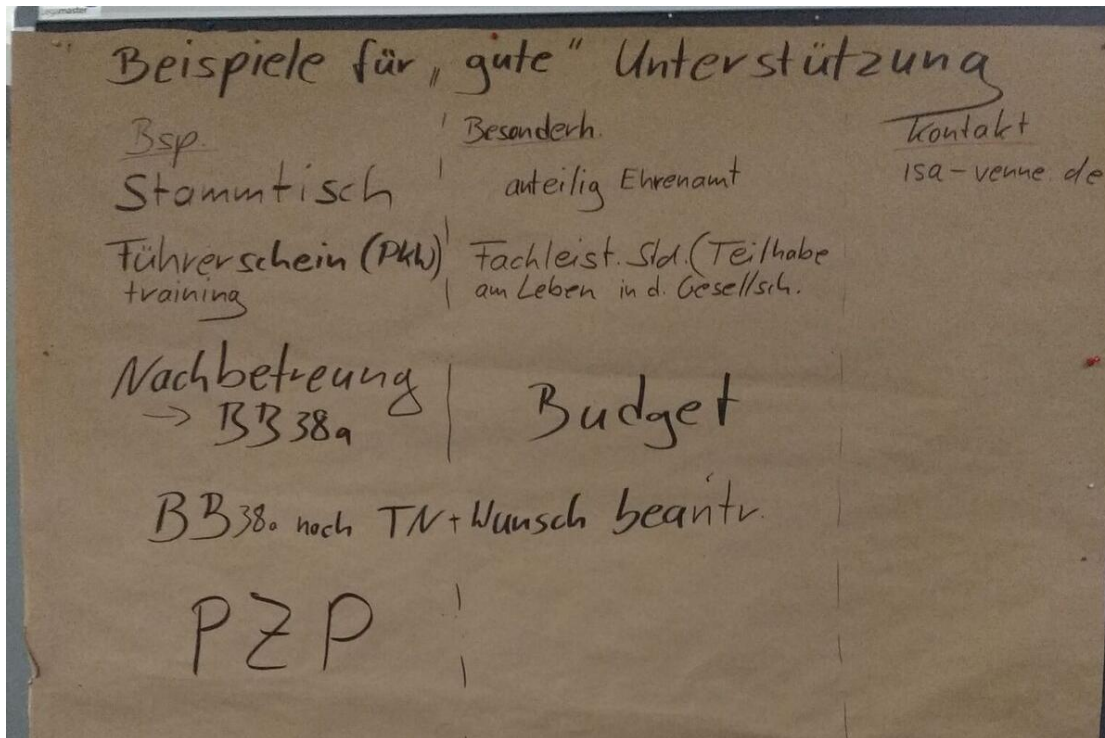 Beispiele für „gute" Unterstützung
Bsp. Besonderh. Kontakt
Stammtisch anteilig Ehrenamt isa-venne.de
Führerschein (PKW) Fachleist. Std. (Teilhabe
training am Leben in d. Gesellsch.
Nachbetreung Budget
→ BB 38a
BB 38a nach TN + Wunsch beantr.
PZP